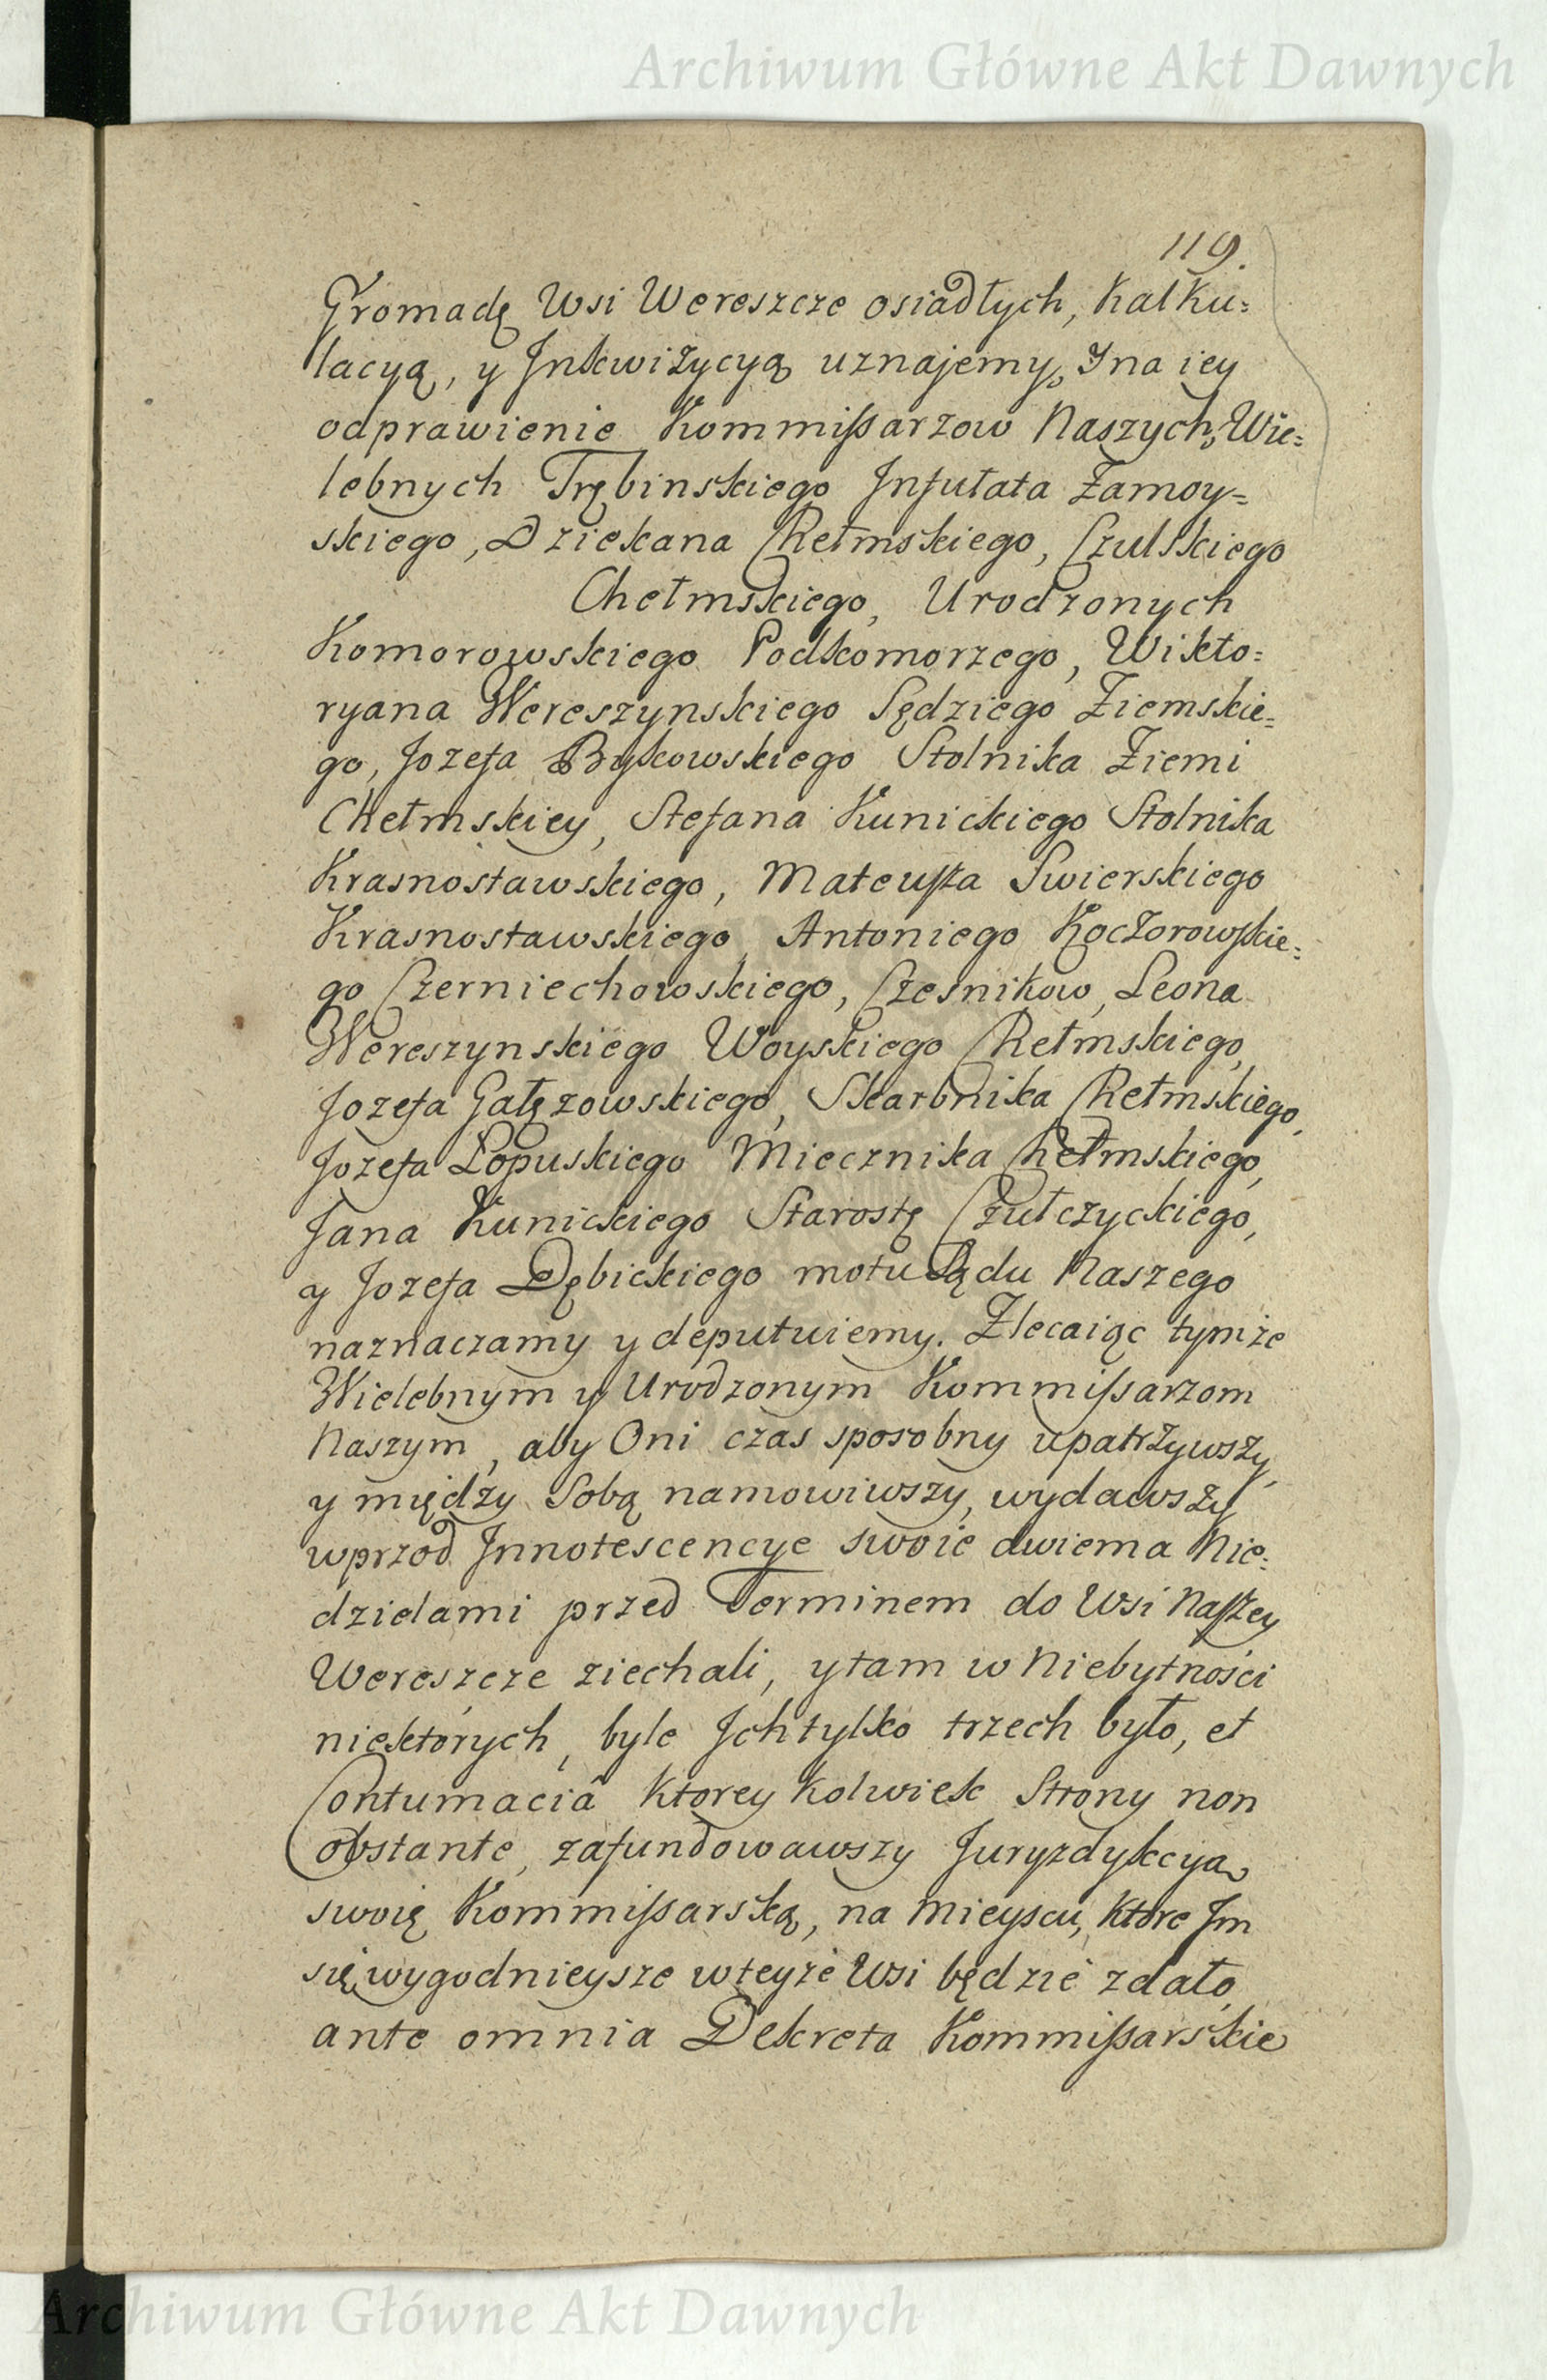 Archiwum Główne Akt Dawnych
119.
Gromadę Wsi Wereszcze osiadłych, Kalku=
lacyą, y Inkwizycyą uznajemy, Y na iey
odprawienie Kommissarzow Naszych, Wie=
lebnych Trębinskiego Infułata Zamoy=
skiego, Dziekana Chełmskiego, Czulskiego
Chełmskiego, Urodzonych
Komorowskiego Podkomorzego, Wikto=
ryana Wereszynskiego Sędziego Ziemskie=
go, Jozefa Bykowskiego Stolnika Ziemi
Chełmskiey, Stefana Kunickiego Stolnika
Krasnostawskiego, Mateusza Swierskiego
Krasnostawskiego, Antoniego Koczorowskie=
go Czerniechowskiego, Czesnikow, Leona
Wereszynskiego Woyskiego Chełmskiego,
Jozefa Gałęzowskiego, Skarbnika Chełmskiego,
Jozefa Łopuskiego Miecznika Chełmskiego,
Jana Kunickiego Starostę Czułczyckiego,
y Jozefa Dębickiego motu Sądu Naszego
naznaczamy y deputuiemy. Zlecaiąc tymże
Wielebnym y Urodzonym Kommissarzom
Naszym, aby Oni czas sposobny upatrzywszy,
y między Sobą namowiwszy, wydawszy
wprzod Innotescencye swoie dwiema Nie=
dzielami przed Terminem do Wsi Naszey
Wereszcze ziechali, y tam w Niebytności
niektórych, byle Ich tylko trzech było, et
Contumaciâ Ktorey kolwiek Strony non
obstante, zafundowawszy Juryzdykcyą
swoię Kommissarską, na Mieyscu, Które Im
się wygodnieysze w teyże Wsi będzie zdało,
ante omnia Dekreta Kommissarskie
Archiwum Główne Akt Dawnych